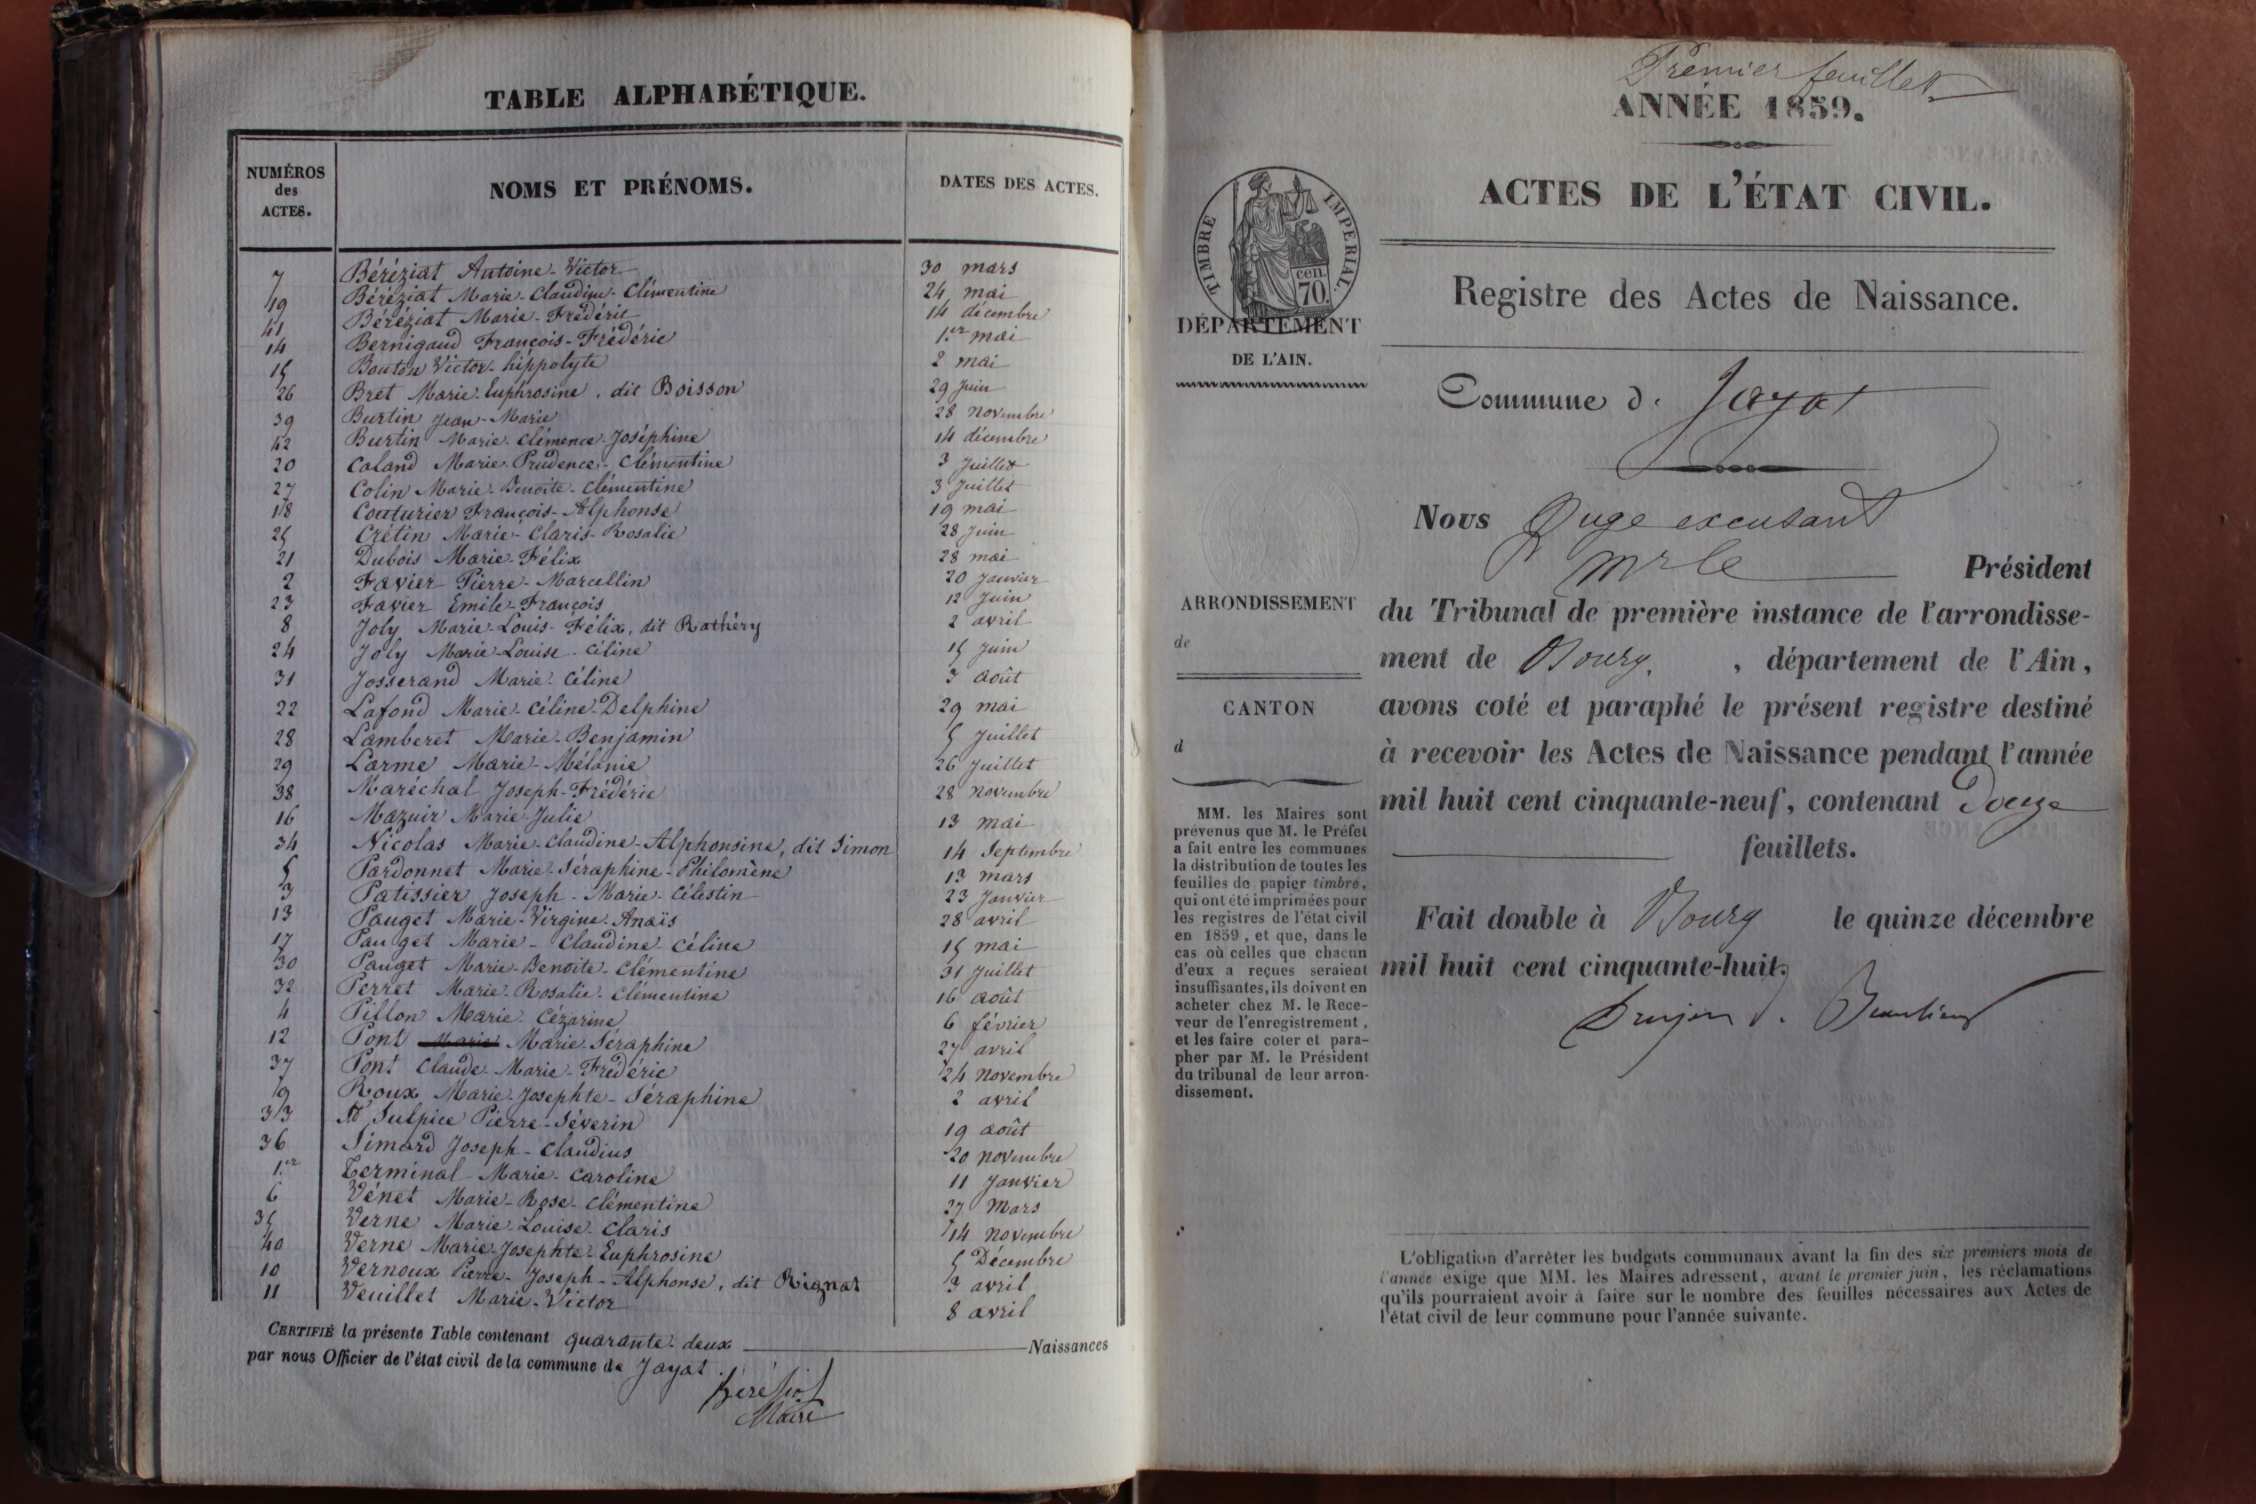 TABLE ALPHABÉTIQUE.
NUMÉROS des ACTES. NOMS ET PRÉNOMS. DATES DES ACTES.
7 Béréziat Antoine-Victor 30 mars
19 Béréziat Marie-Claudine-Clémentine 24 mai
41 Béréziat Marie-Frédéric 14 décembre
14 Bernigaud François-Frédéric 1.er mai
15 Bouton Victor-hippolyte 2 mai
26 Bret Marie-Euphrosine, dit Boisson 29 Juin
39 Burtin Jean-Marie 28 novembre
42 Burtin Marie-Clémence-Joséphine 14 décembre
20 Caland Marie-Prudence-Clémentine 3 Juillet
27 Colin Marie-Benoite-Clémentine 3 Juillet
18 Couturier François-Alphonse 19 mai
25 Crétin Marie-Claris-Rosalie 28 Juin
21 Dubois Marie-Félix 28 mai
2 Favier Pierre-Marcellin 20 Janvier
23 Favier Emile-François 12 Juin
8 Joly Marie-Louis-Félix, dit Rathéry 2 avril
24 Joly Marie-Louise-Céline 15 Juin
31 Josserand Marie-Céline 3 août
22 Lafond Marie-Céline-Delphine 29 mai
28 Lamberet Marie-Benjamin 5 Juillet
29 Larme Marie-Mélanie 26 Juillet
38 Maréchal Joseph-Frédéric 28 novembre
16 Mazuir Marie-Julie 13 mai
34 Nicolas Marie-Claudine-Alphonsine, dit Simon 14 Septembre
5 Pardonnet Marie-Séraphine-Philomène 13 mars
3 Patissier Joseph-Marie-Célestin 23 Janvier
13 Pauget Marie-Virgine-Anaïs 28 avril
17 Pauget Marie-Claudine-Céline 15 mai
30 Pauget Marie-Benoite-Clémentine 31 Juillet
32 Perret Marie-Rosalie-Clémentine 16 août
4 Pillon Marie-Cézarine 6 février
12 Pont Marie Marie-Séraphine 27 avril
37 Pont Claude-Marie-Frédéric 24 novembre
9 Roux Marie-Josephte-Séraphine 2 avril
33 St Sulpice Pierre-Séverin 19 août
36 Simard Joseph-Claudius 20 novembre
1.er Terminal Marie-Caroline 11 Janvier
6 Vénet Marie-Rose-Clémentine 27 Mars
35 Verne Marie-Louise-Claris 14 novembre
40 Verne Marie-Josephte-Euphrosine 5 Décembre
10 Vernoux Pierre-Joseph-Alphonse, dit Rignat 3 avril
11 Veuillet Marie-Victor 8 avril
CERTIFIÉ la présente Table contenant quarante-deux Naissances
par nous Officier de l'état civil de la commune de Jayat.
Béréziat
Maire
Premier feuillet
ANNÉE 1859.
ACTES DE L'ÉTAT CIVIL.
Registre des Actes de Naissance.
TIMBRE IMPERIAL.
cen.
70.
DÉPARTEMENT
DE L'AIN.
ARRONDISSEMENT
de
CANTON
d
MM. les Maires sont
prévenus que M. le Préfet
a fait entre les communes
la distribution de toutes les
feuilles de papier timbré,
qui ont été imprimées pour
les registres de l'état civil
en 1859, et que, dans le
cas où celles que chacun
d'eux a reçues seraient
insuffisantes, ils doivent en
acheter chez M. le Rece-
veur de l'enregistrement,
et les faire coter et para-
pher par M. le Président
du tribunal de leur arron-
dissement.
Commune d. Jayat
Nous Juge excusant
Mr le Président
du Tribunal de première instance de l'arrondisse-
ment de Bourg. , département de l'Ain,
avons coté et paraphé le présent registre destiné
à recevoir les Actes de Naissance pendant l'année
mil huit cent cinquante-neuf, contenant Douze
feuillets.
Fait double à Bourg le quinze décembre
mil huit cent cinquante-huit.
L'obligation d'arrêter les budgets communaux avant la fin des six premiers mois de
l'année exige que MM. les Maires adressent, avant le premier juin, les réclamations
qu'ils pourraient avoir à faire sur le nombre des feuilles nécessaires aux Actes de
l'état civil de leur commune pour l'année suivante.